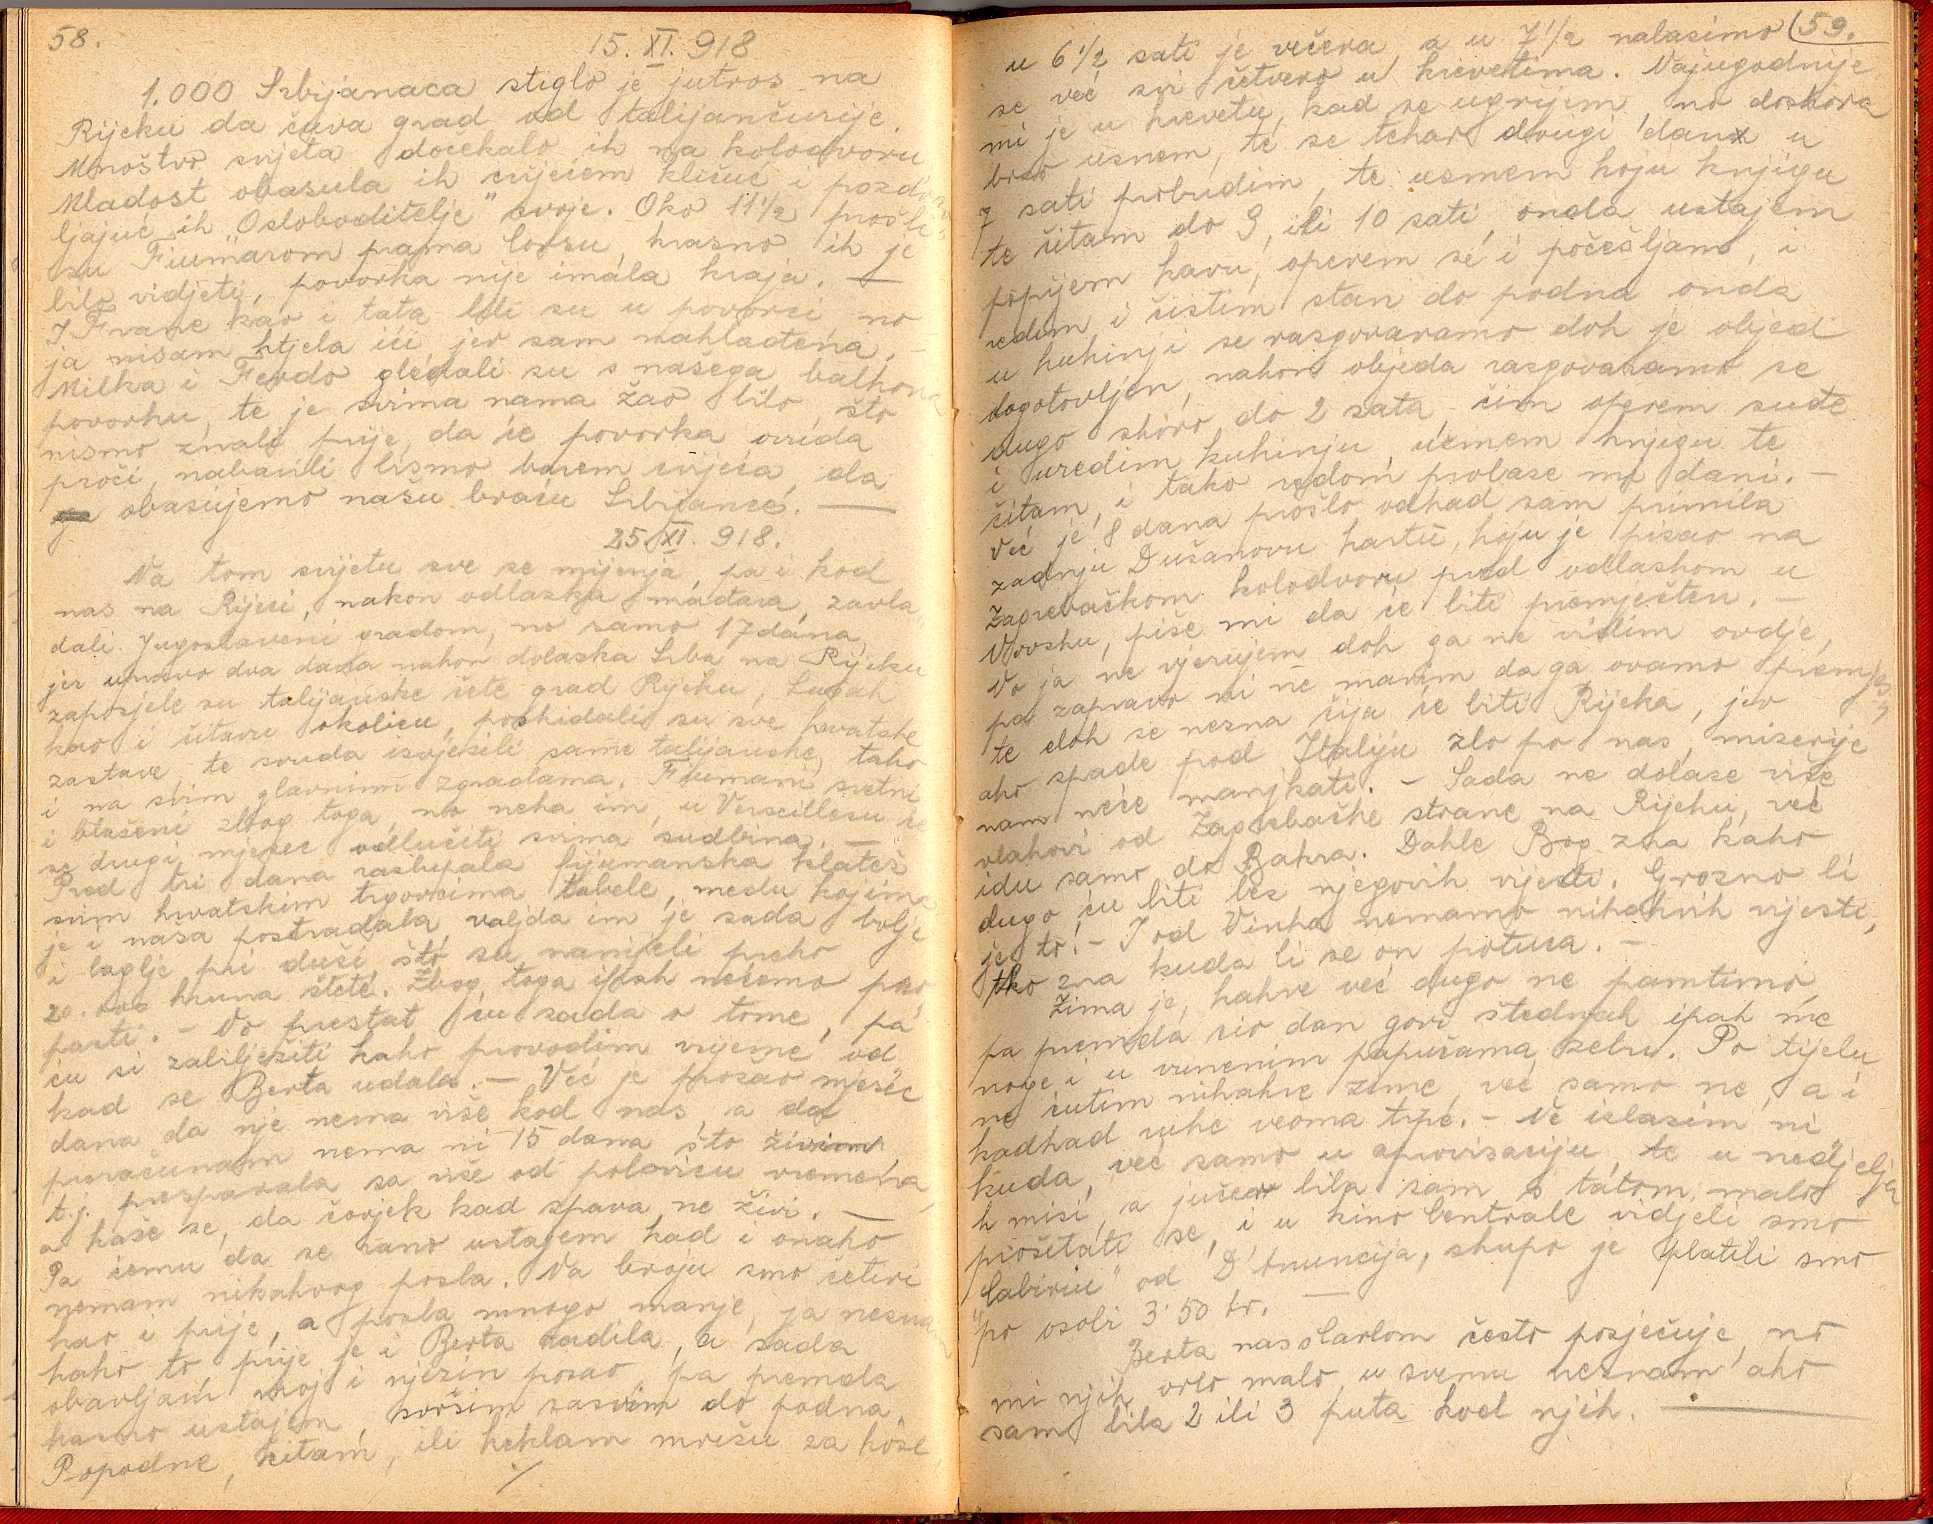 58.
15. XI. 918
1.000 Srbijanaca stiglo je jutros na
Rijeku da čuva grad od talijančurije.
Mnoštvo svjeta dočekalo ih na kolodvoru
Mladost obasula ih cvijećem kličuć i pozdrav
ljajuć ih "Osloboditelje" svoje. Oko 11 1/2 prošli
su Fiumarom prama Corsu, krasno ih je
bilo vidjeti, povorka nije imala kraja. —
I Frane kao i tata bili su u povorci no
ja nisam htjela ići jer sam nahlađena. —
Milka i Ferdo gledali su s našega balkona
povorku, te je svima nama žao bilo što
nismo znali prije, da će povorka ovuda
proći, nabavili bismo barem cvijeća, da
obasujemo našu braću Srbijance. —
25. XI. 918.
Na tom svijetu sve se mijenja, pa i kod
nas na Rijeci, nakon odlazka mađara, zavla
dali Jugoslaveni gradom, no samo 17 dana,
jer upravo dva dana nakon dolaska Srba na Rijeku
zaposjele su talijanske čete grad Rijeku, Sušak
kao i čitavu okolicu, poskidali su sve hrvatske
zastave, te svuda izvjesili same talijanske, tako
i na svim glavnim zgradama. Fiumani sretni
i blaženi zbog toga, no neka im, u Versaillesu će
se drugi mjesec odlučiti svima sudbina. —
Pred tri dana raslupala fijumanska klatež
svim hrvatskim trgovcima tabele, među kojima
je i naša postradala, valjda im je sada bolje
i laglje pri duši što su nanijeli preko
20.000 kruna štete. Zbog toga ipak nećemo pro
pasti. — No prestat ću sada o tome, pa
ću si zabilježiti kako provodim vrijeme od
kad se Berta udala. — Već je prošao mjesec
dana da nje nema više kod nas, a da
proračunam nema ni 15 dana što živim,
t.j. prespavala sa više od polovicu vremena,
a kaže se, da čovjek kad spava, ne živi. —
Pa čemu da se rano ustajem kad i onako
nemam nikakvog posla. Na broju smo četiri
kao i prije, a posla mnogo manje, ja neznam
kako to, prije je i Berta radila, a sada
obavljam moj i njezin posao, pa premda
kasno ustajem, svršim sasvim do podna.
Popodne, čitam, ili heklam mrežu za kose
./.
59.
u 6 1/2 sati je večera, a u 7 1/2 nalazimo
se već svi četvero u krevetima. Najugodnije
mi je u krevetu, kad se ugrijem no doskora
brzo usnem, te se tekar drugi dan u
7 sati probudim, te uzmem koju knjigu
te čitam do 9, ili 10 sati, onda ustajem
popijem kavu, operem se i počešljam, i
redim i čistim stan do podna onda
u kuhinji se razgovaramo dok je objed
dogotovljen, nakon objeda razgovaramo se
dugo skoro do 2 sata, čim operem suđe
i uredim kuhinju, uzmem knjigu te
čitam, i tako redom prolaze mi dani. —
Već je 8 dana prošlo odkad sam primila
zadnju Dušanovu kartu, koju je pisao na
Zagrebačkom kolodvoru pred odlaskom u
Novsku, piše mi da će biti premješten. —
No ja ne vjerujem dok ga ne vidim ovdje,
pa zapravo ni ne marim da ga ovamo premjes
te dok se nezna čija će biti Rijeka, jer
ako spade pod Italiju zlo po nas, miserije
nam neće manjkati. — Sada ne dolaze više
vlakovi od Zagrebačke strane na Rijeku, već
idu samo do Bakra. Dakle Bog zna kako
dugo ću biti bez njegovih vijesti. Grozno li
je to! — I od Vinka nemamo nikakvih vijesti,
tko zna kuda li se on potuca. —
Zima je, kakve već dugo ne pamtimo,
pa premda cio dan gori štednjak ipak me
noge i u vunenim papučama zebu. Po tijelu
ne ćutim nikakve zime, već samo ne, a i
kadkad ruke veoma trpe. — Ne izlazim ni
kuda, već samo u aprovizaciju, te u nedjelju
k misi, a jučer bila sam s tatom malo
prošetati se, i u kino Centrale vidjeli smo
"Cabiriu" od D'Anuncija, skupo je platili smo
po osobi 3.50 kr. —
Berta nas s Carlom često posjećuje, no
mi njih vrlo malo, u svemu neznam ako
sam bila 2 ili 3 puta kod njih. —